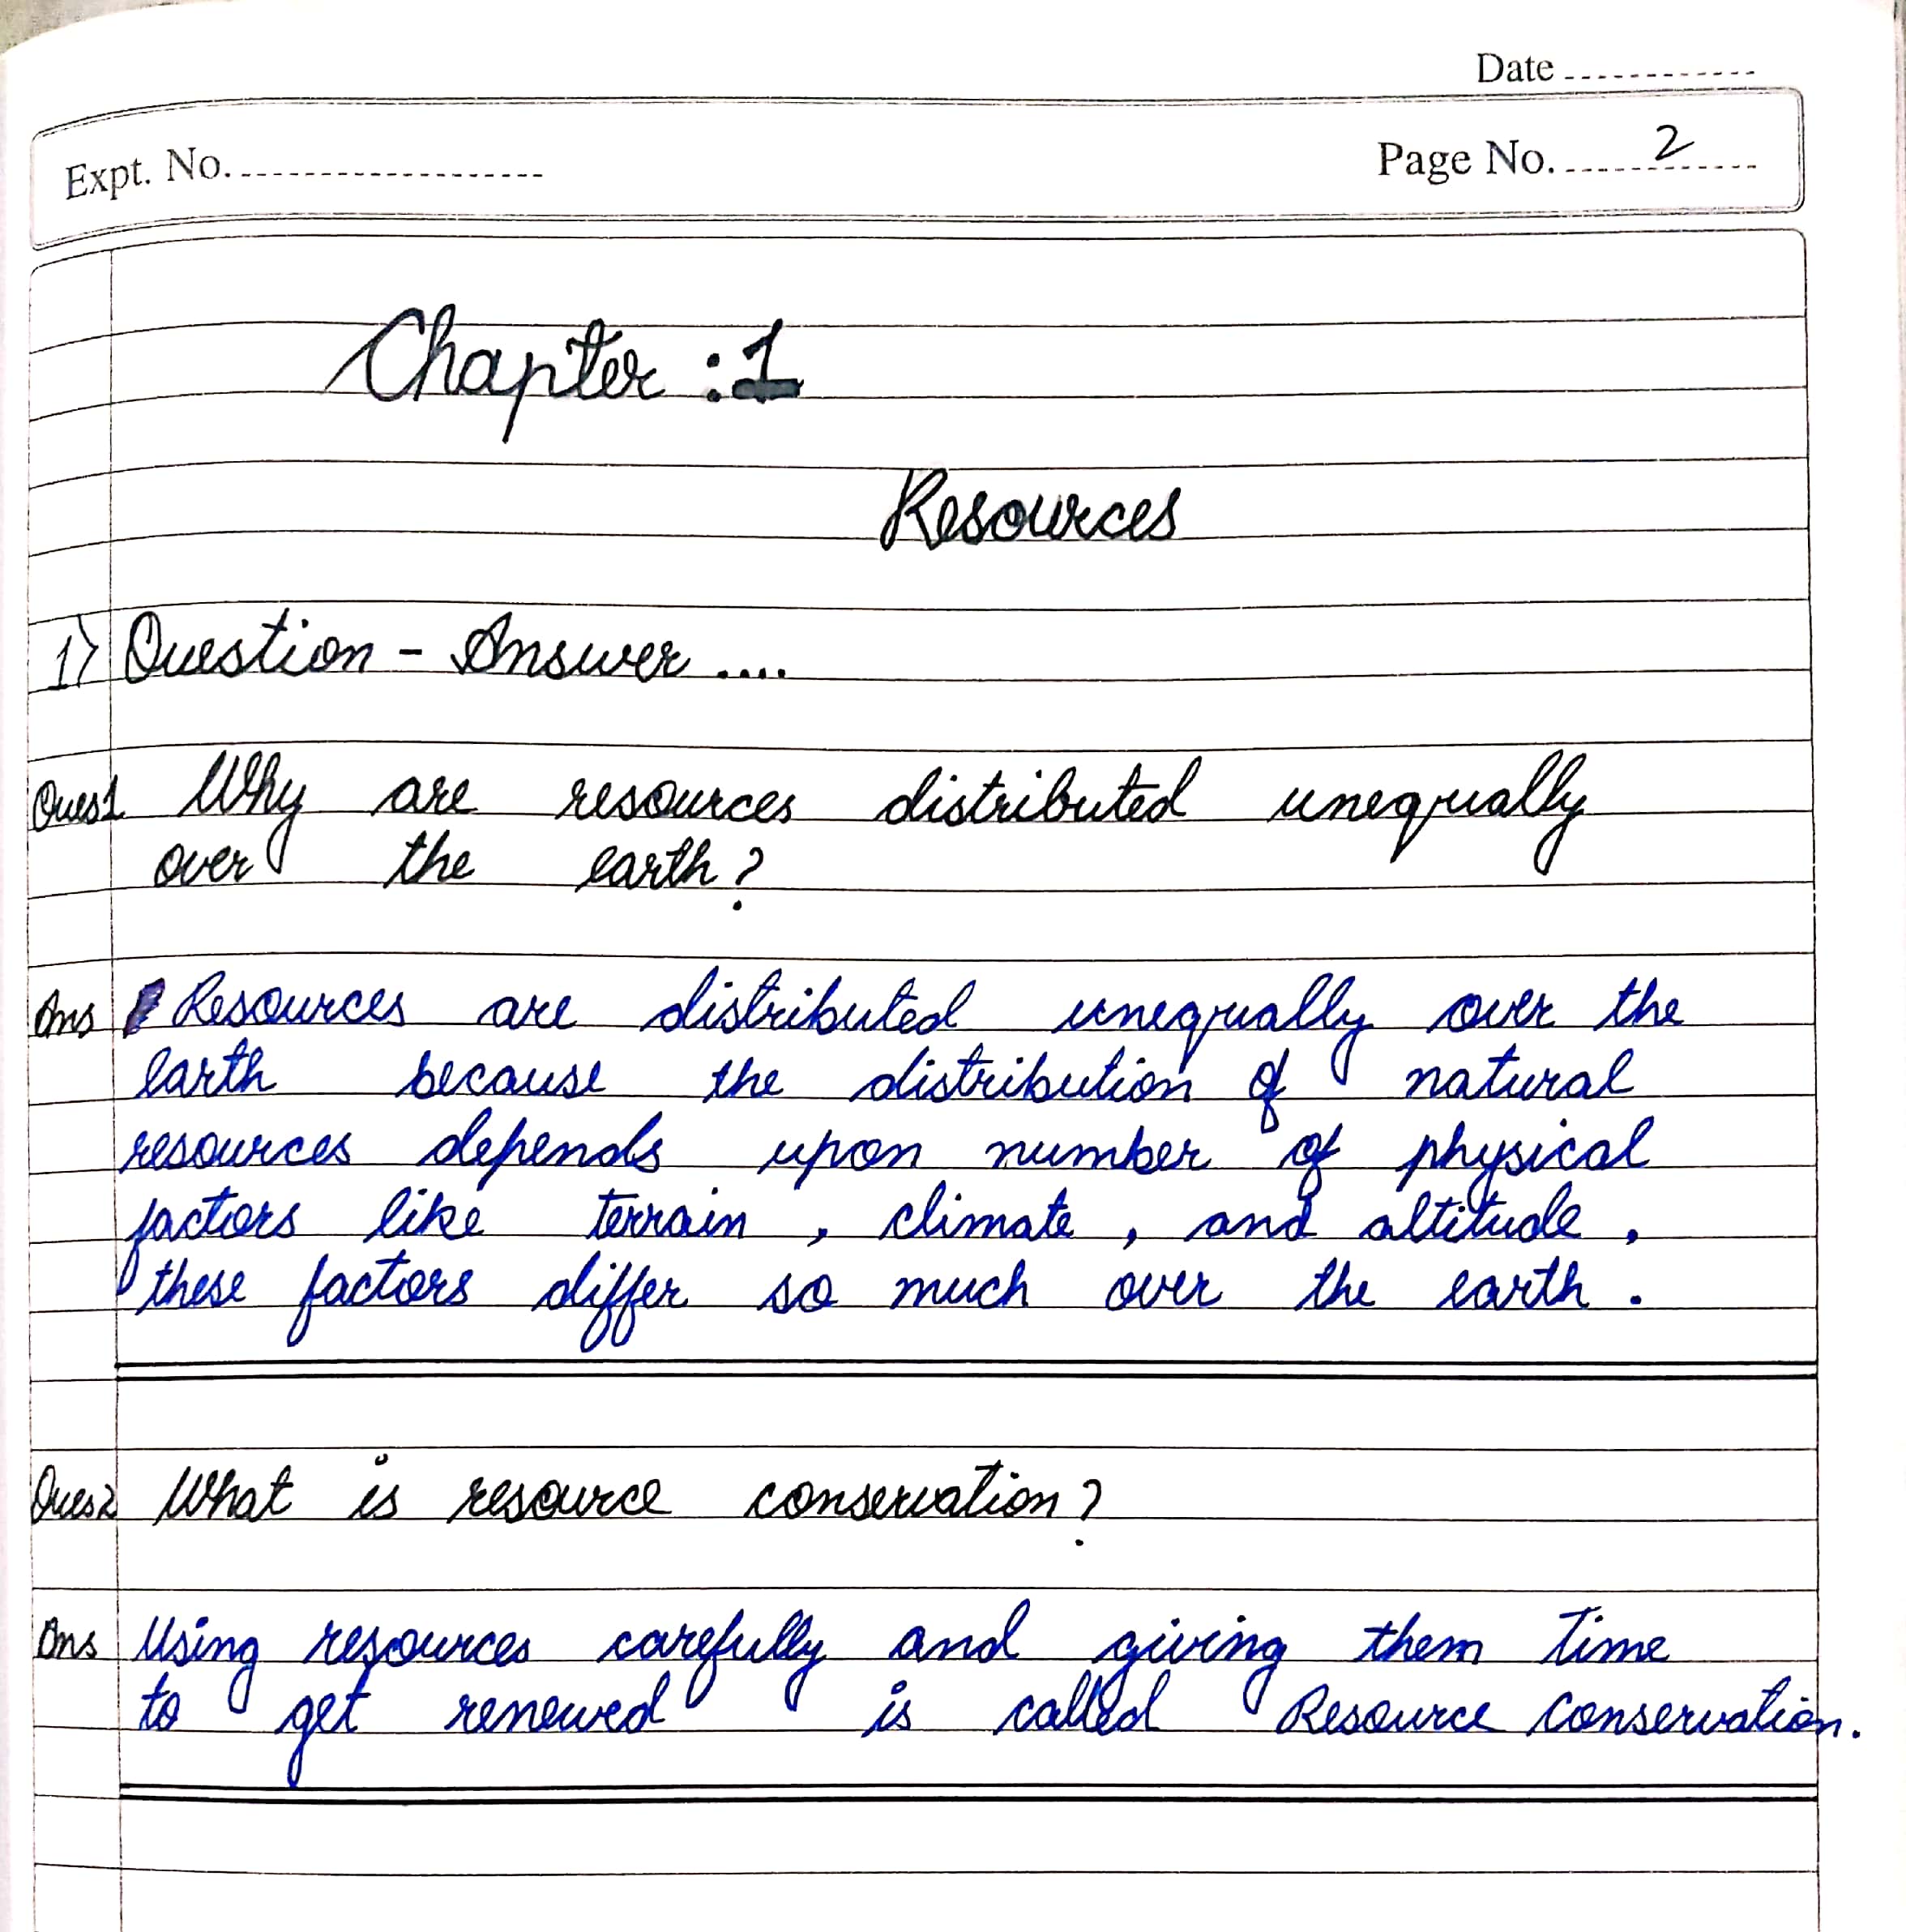 Date
Expt. No. Page No. 2
Chapter : 1
Resources
1) Question - Answer ....
Ques1 Why are resources distributed unequally
over the earth?
Ans Resources are distributed unequally over the
earth because the distribution of natural
resources depends upon number of physical
factors like terrain , climate , and altitude ,
these factors differ so much over the earth .
Ques2 What is resource conservation?
Ans Using resources carefully and giving them time
to get renewed is called Resource Conservation.